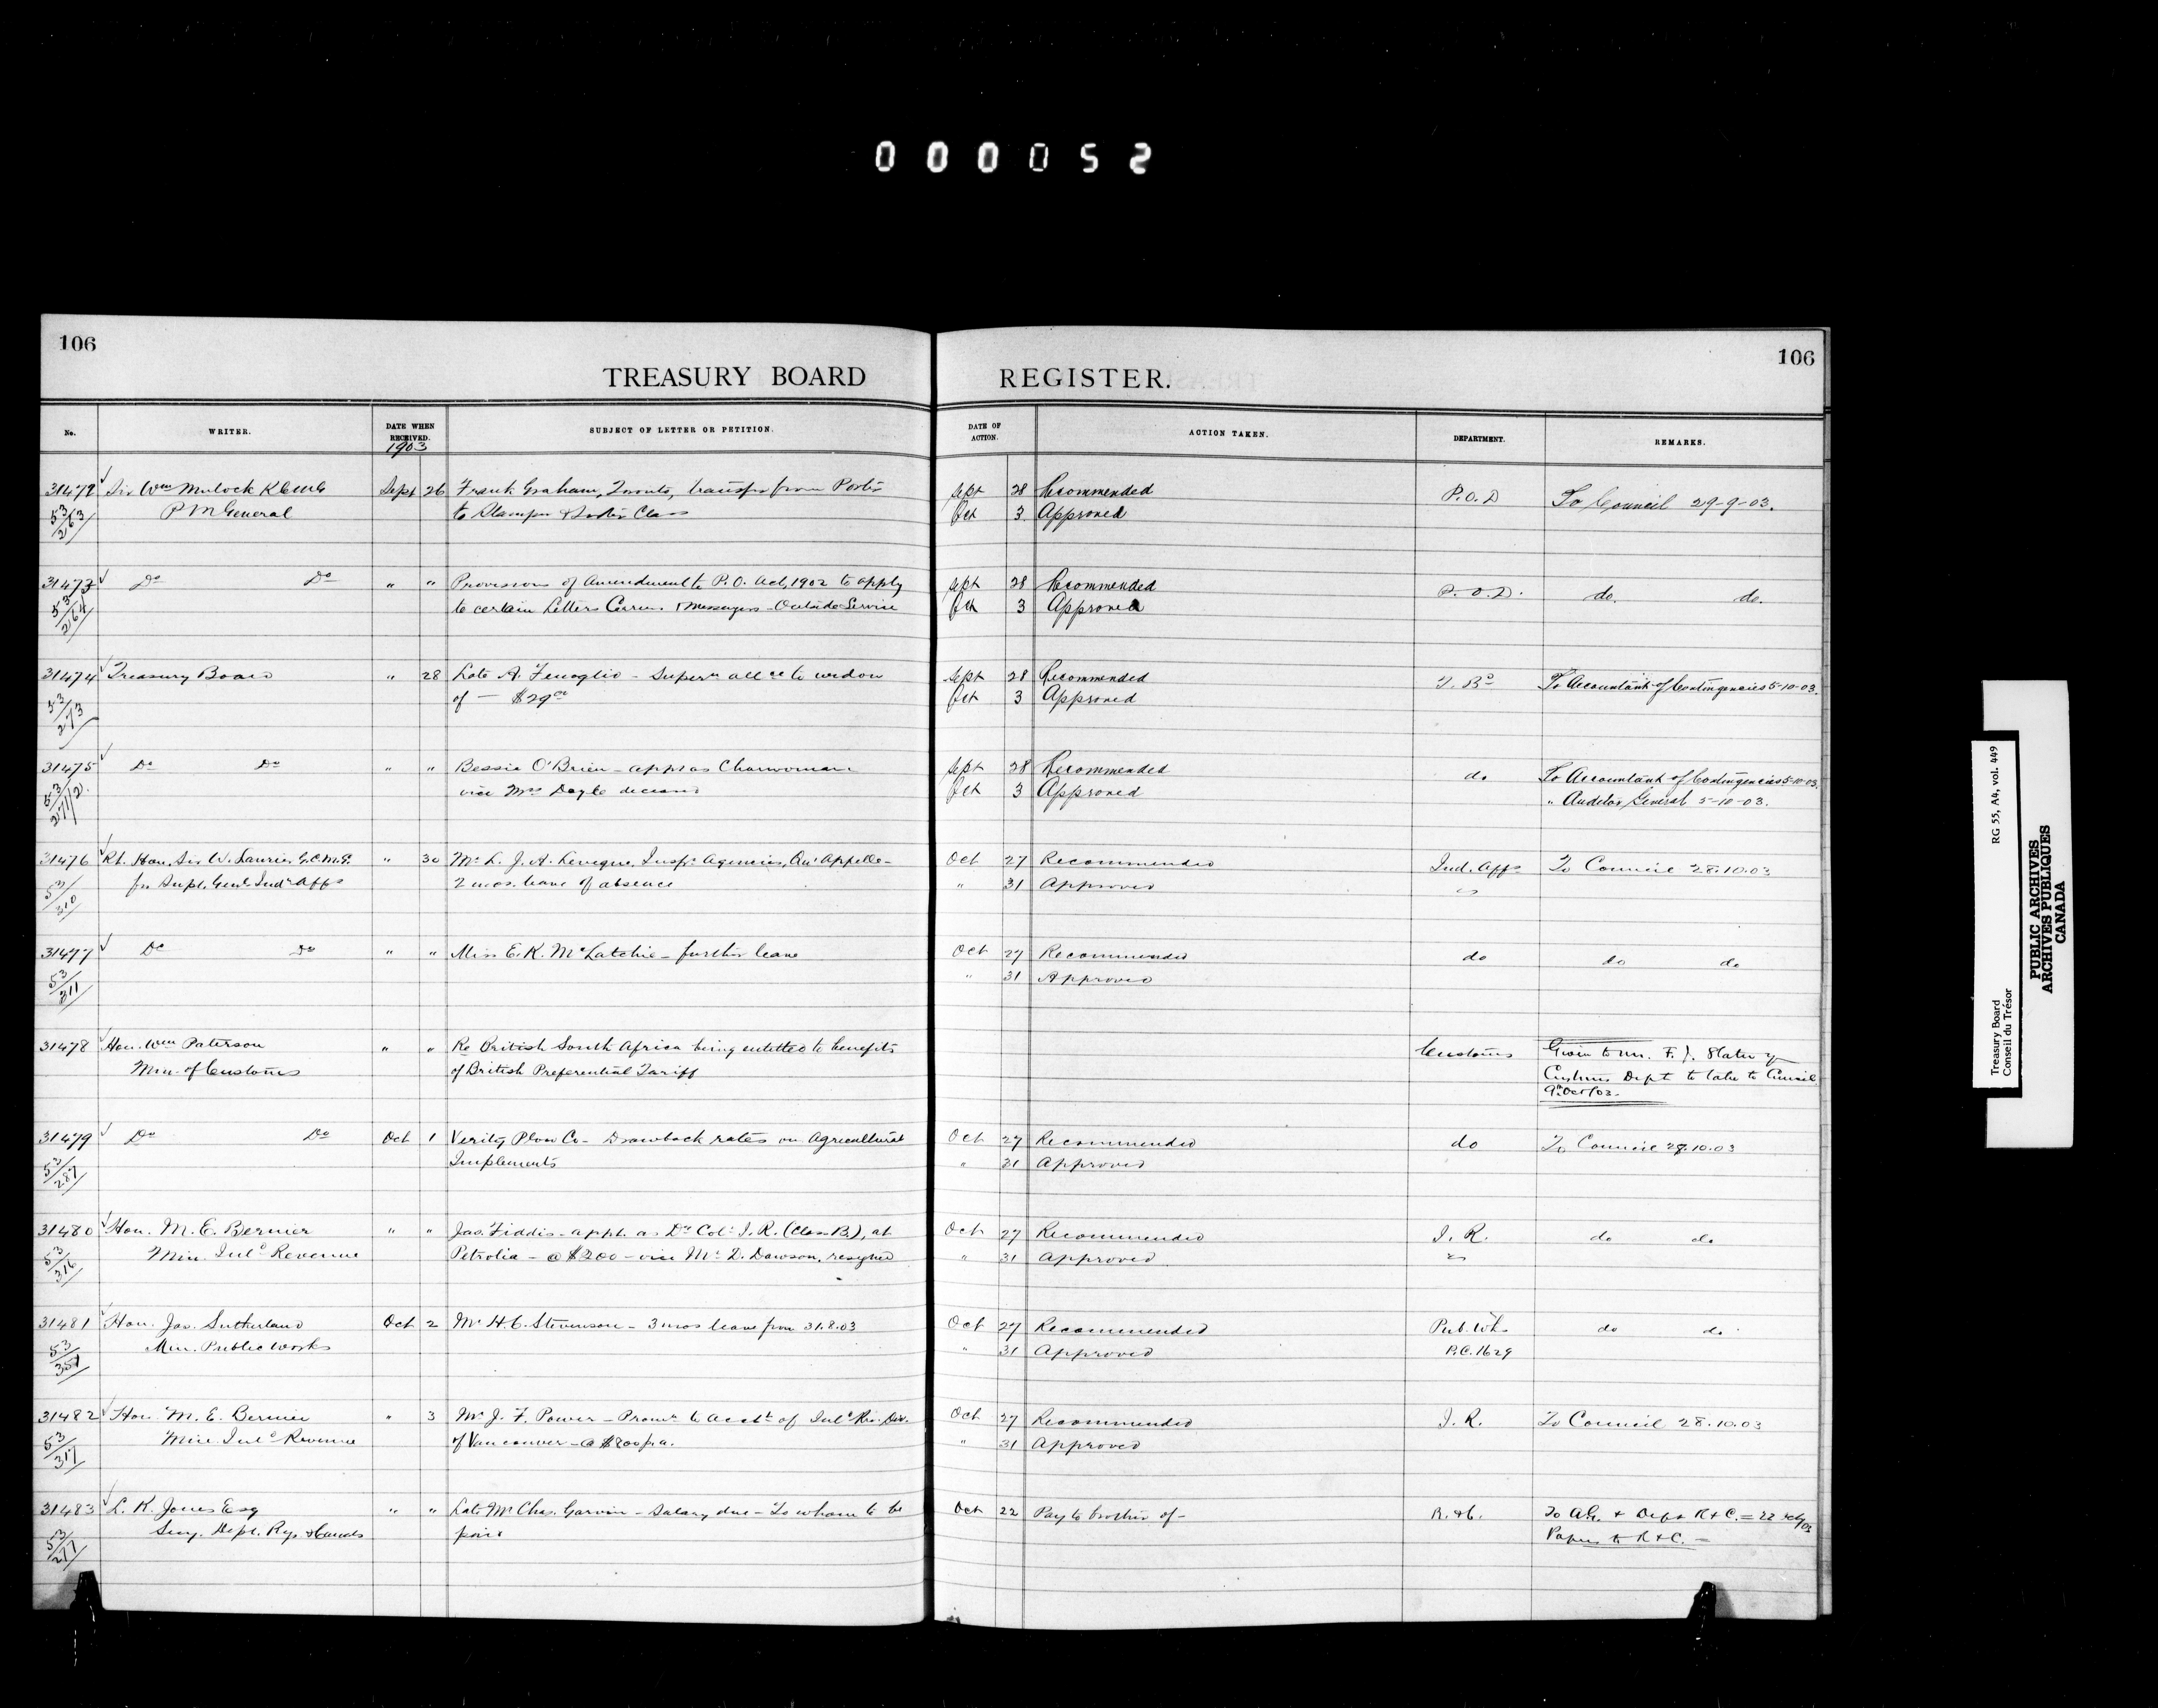 000052
106
106
TREASURY BOARD REGISTER.
No. WRITER. DATE WHEN RECEIVED. SUBJECT OF LETTER OR PETITION. DATE OF ACTION. ACTION TAKEN. DEPARTMENT. REMARKS.
1903
31472 Sir Wm Mulock KCMG Sept 26 Frank Graham, Toronto, transfer from Porter Sept 28 Recommended P.O.D To Council 29-9-03.
53/263 P M General to Stamper & Sorter Class Oct 3 Approved
31473 Do Do " " Provisions of Amendment to P.O. Act, 1902 to apply Sept 28 Recommended P.O.D. do. do.
53/264 to certain Letters Carriers & Messengers - Outside Service Oct 3 Approved
31474 Treasury Board " 28 Late A. Fenoglio - Supern allce to widow Sept 28 Recommended T. Bd To Accountant of Contingencies 5-10-03.
53/273 of — $29 Oct 3 Approved
31475 Do Do " " Bessie O'Brien - appt as Charwoman Sept 28 Recommended do To Accountant of Contingencies 5-10-03.
53/271/2 vice Mrs Doyle deceased Oct 3 Approved " Auditor General 5-10-03.
31476 Rt. Hon. Sir W. Laurier G.C.M.G. " 30 Mr L. J. A. Leveque, Inspr Agencies, Qu'Appelle - Oct 27 Recommended Ind. Affs To Council 28.10.03
53/310 for Supt. Genl. Ind Affs 2 mos. leave of absence " 31 Approved
31477 Do Do " " Miss E. K. McLatchie - further leave Oct 27 Recommended do do do
53/311 " 31 Approved
31478 Hon. Wm Paterson " " Re British South Africa being entitled to benefits Customs Given to Mr. F. J. Slater of
Min. of Customs of British Preferential Tariff Customs Dept to take to Council
9 Oct/03.
31479 Do Do Oct 1 Verity Plow Co - Drawback rates on Agricultural Oct 27 Recommended do To Council 28.10.03
53/287 Implements " 31 Approved
31480 Hon. M. E. Bernier " " Jas. Fiddis - appt. as Dy Colr I. R. (Class B.), at Oct 27 Recommended I. R. do do
53/316 Min. Inld Revenue Petrolia - @ $200 - vice Mr D. Dawson, resigned " 31 Approved
31481 Hon. Jas. Sutherland Oct 2 Mr H. C. Stevenson - 3 mos leave from 31.8.03 Oct 27 Recommended Pub. Wks do do
53/357 Min. Public Works " 31 Approved P.C. 1629
31482 Hon. M. E. Bernier " 3 Mr J. F. Power - Promn to Acctt of Inld Rev. Div. Oct 27 Recommended I. R. To Council 28.10.03
53/317 Min. Inld Revenue of Vancouver - @ $800 p.a. " 31 Approved
31483 L. K. Jones Esq " " Late Mr Chas. Garvin - Salary due - To whom to be Oct 22 Pay to brother of - R. & C. To A.G. & Dept R & C. = 22 Oct/03
53/277 Secy. Dept. Rys & Canals paid Papers to R & C. =
RG 55, A4, vol. 449
Treasury Board
Conseil du Trésor
PUBLIC ARCHIVES
ARCHIVES PUBLIQUES
CANADA